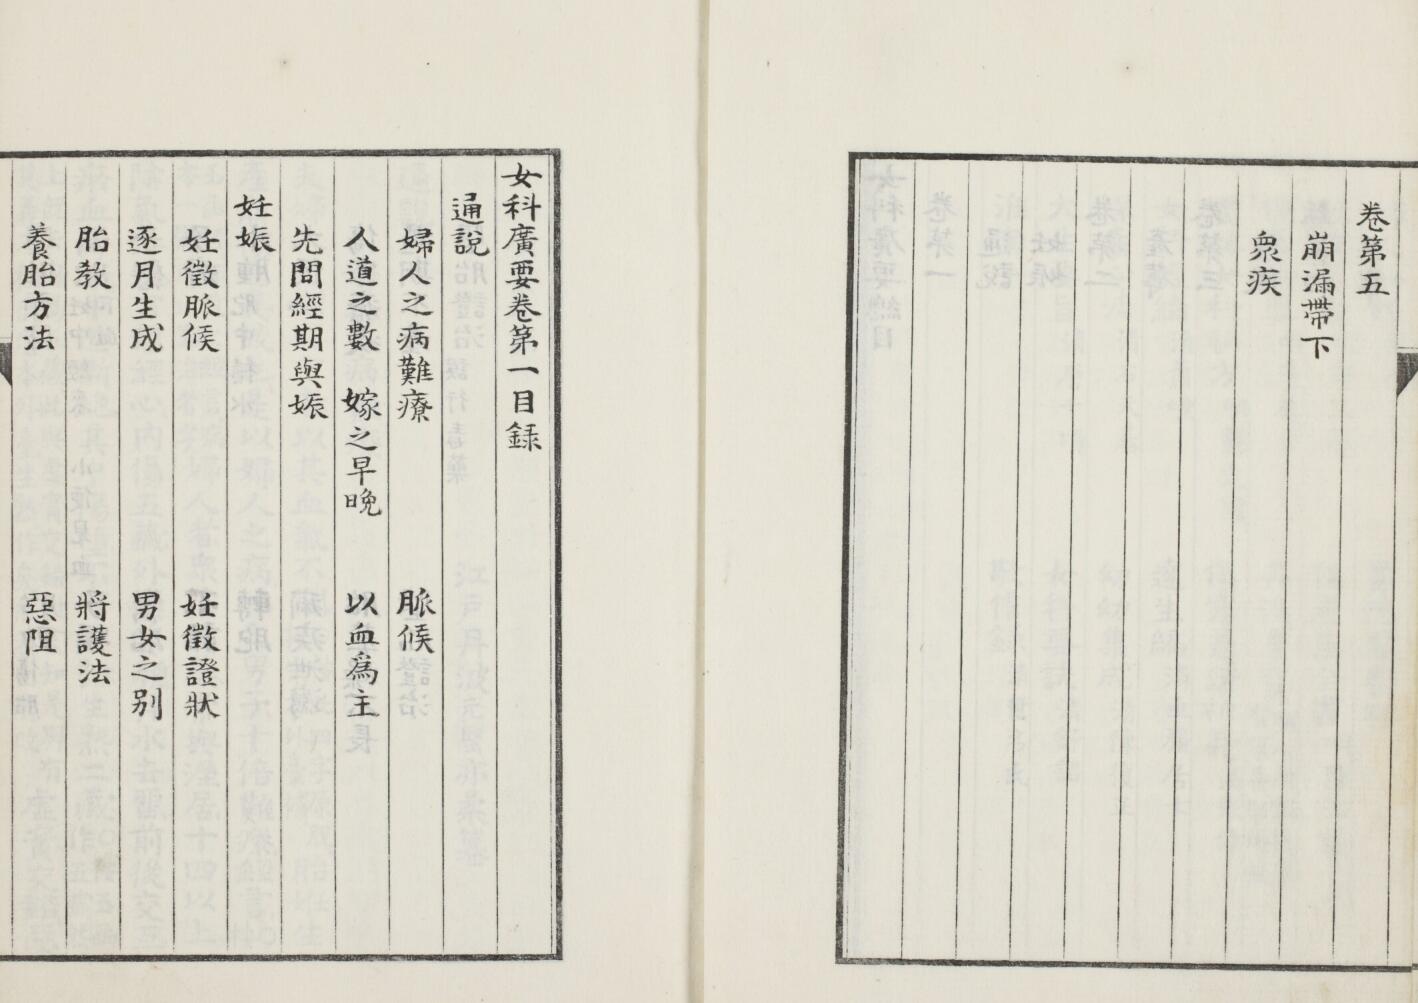 卷第五
崩漏帶下
衆疾
女科廣要卷第一目録
通説
婦人之病難療 脈候
人道之數 嫁之早晚 以血爲主
先問經期與娠
妊娠
妊徵脈候 妊徵證狀
逐月生成 男女之别
胎教 將護法
養胎方法 惡阻